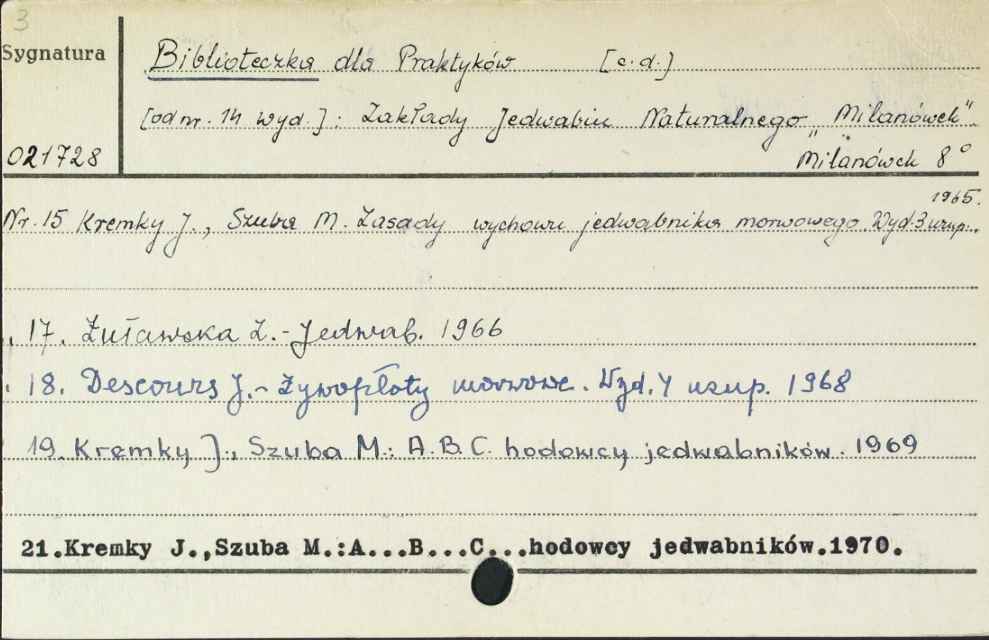 3
Sygnatura
Biblioteczka dla Praktyków [c.d.]
[od nr. 14 wyd.]: Zakłady Jedwabiu Naturalnego „Milanówek".
021728
Milanówek 8°
1965.
Nr. 15 Kremky J., Szuba M. Zasady wychowu jedwabnika morwowego. Wyd. 3 uzup.
„ 17. Żuławska Z. - Jedwab. 1966
„ 18. Descours J. - Żywopłoty morwowe. Wyd. 4 uzup. 1968
„ 19. Kremky J., Szuba M.: A.B.C. hodowcy jedwabników. 1969
21.Kremky J.,Szuba M.:A...B...C...hodowcy jedwabników.1970.